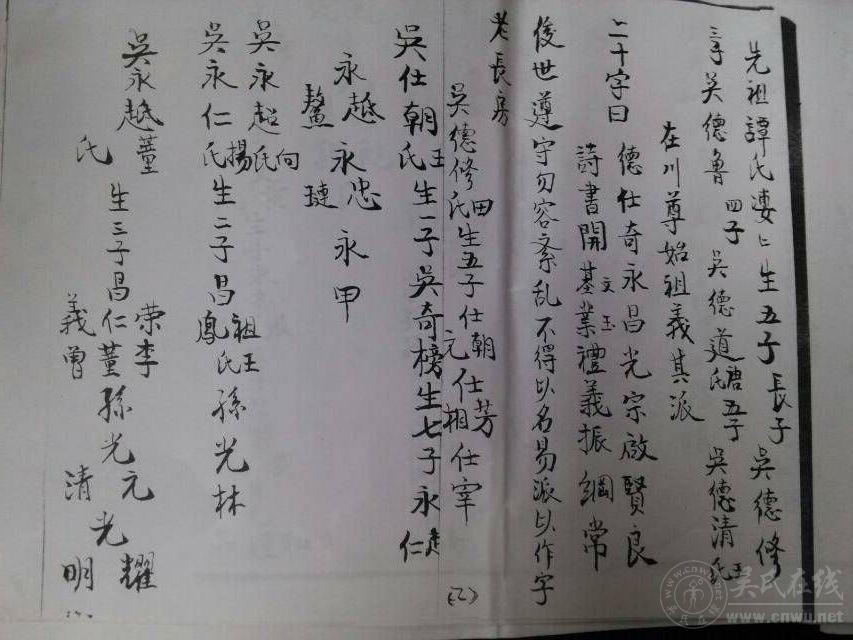 先祖譚氏婆二生五子長子吳德修
三子吳德魯四子吳德道氏唐五子吳德清氏王
在川尊始祖義其派
二十字曰德仕奇永昌光宗啟賢良
詩書開基業禮義振綱常
文玉
後世遵守勿容紊乱不得以名易派以作字
老長房
吳德修氏田生五子仕朝仕元仕芳仕相仕宰
吳仕朝氏王生一子吳奇榜生七子永仁
永越永忠永甲
鰲璉
吳永超氏向
吳永仁氏楊生二子昌祖氏王孫光林
鳳
吳永越氏董生三子昌榮李孫光元光耀
仁董
義曾
清明
(乙)
吴氏在线
www.cnwu.net